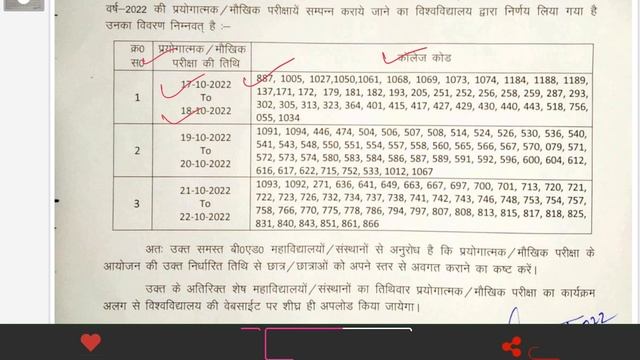 वर्ष-2022 की प्रयोगात्मक/मौखिक परीक्षायें सम्पन्न कराये जाने का विश्वविद्यालय द्वारा निर्णय लिया गया है
उनका विवरण निम्नवत् है :–
क्र0 सं0
प्रयोगात्मक/मौखिक परीक्षा की तिथि
कॉलेज कोड
1
17-10-2022
To
18-10-2022
887, 1005, 1027,1050,1061, 1068, 1069, 1073, 1074, 1184, 1188, 1189,
137,171, 172, 179, 181, 182, 193, 205, 251, 252, 256, 258, 259, 287, 293,
302, 305, 313, 323, 364, 401, 415, 417, 427, 429, 430, 440, 443, 518, 756,
055, 1034
2
19-10-2022
To
20-10-2022
1091, 1094, 446, 474, 504, 506, 507, 508, 514, 524, 526, 530, 536, 540,
541, 543, 548, 550, 551, 554, 557, 558, 560, 565, 566, 567, 570, 079, 571,
572, 573, 574, 580, 583, 584, 586, 587, 589, 591, 592, 596, 600, 604, 612,
616, 617, 622, 715, 752, 533, 1012, 1067
3
21-10-2022
To
22-10-2022
1093, 1092, 271, 636, 641, 649, 663, 667, 697, 700, 701, 713, 720, 721,
722, 723, 726, 732, 734, 737, 738, 741, 742, 743, 746, 748, 753, 754, 757,
758, 766, 770, 775, 778, 786, 794, 797, 807, 808, 813, 815, 817, 818, 825,
831, 840, 843, 851, 861, 866
अतः उक्त समस्त बी0एड0 महाविद्यालयों/संस्थानों से अनुरोध है कि प्रयोगात्मक/मौखिक परीक्षा के
आयोजन की उक्त निर्धारित तिथि से छात्र/छात्राओं को अपने स्तर से अवगत कराने का कष्ट करें।
उक्त के अतिरिक्त शेष महाविद्यालयों/संस्थानों का तिथिवार प्रयोगात्मक/मौखिक परीक्षा का कार्यक्रम
अलग से विश्वविद्यालय की वेबसाईट पर शीघ्र ही अपलोड किया जायेगा।